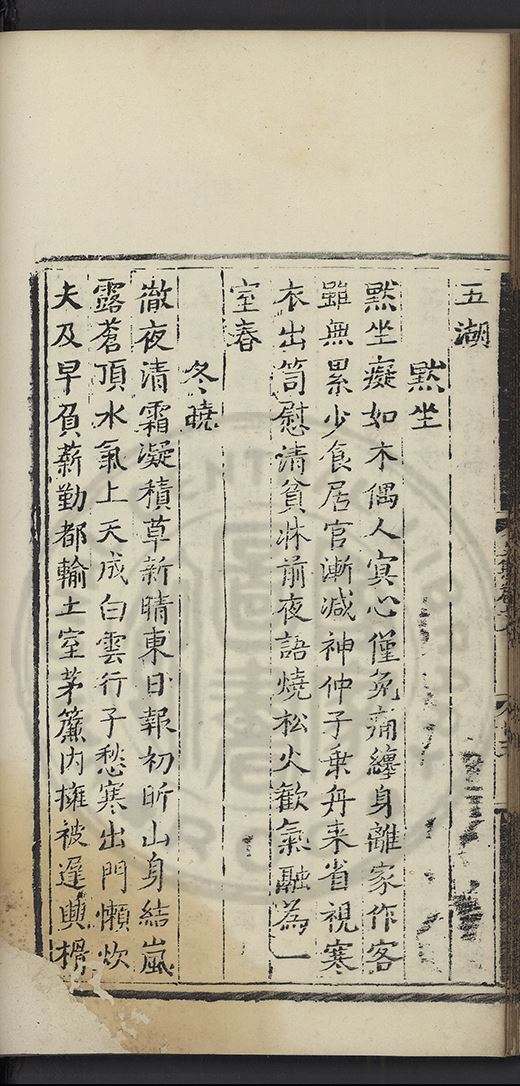 五湖
默坐
默坐癡如木偶人寘心僅免痛纏身離家作客
雖無累少食居官漸減神仲子乗舟来省視寒
衣出笥慰清貧牀前夜語燒松火歡氣融為一
室春
冬曉
徹夜清霜凝積草新晴東日報初昕山身結嵐
露蒼頂水氣上天成白雲行子愁寒出門懶炊
夫及早負薪勤都輸土室茅簾内擁被遲興榾